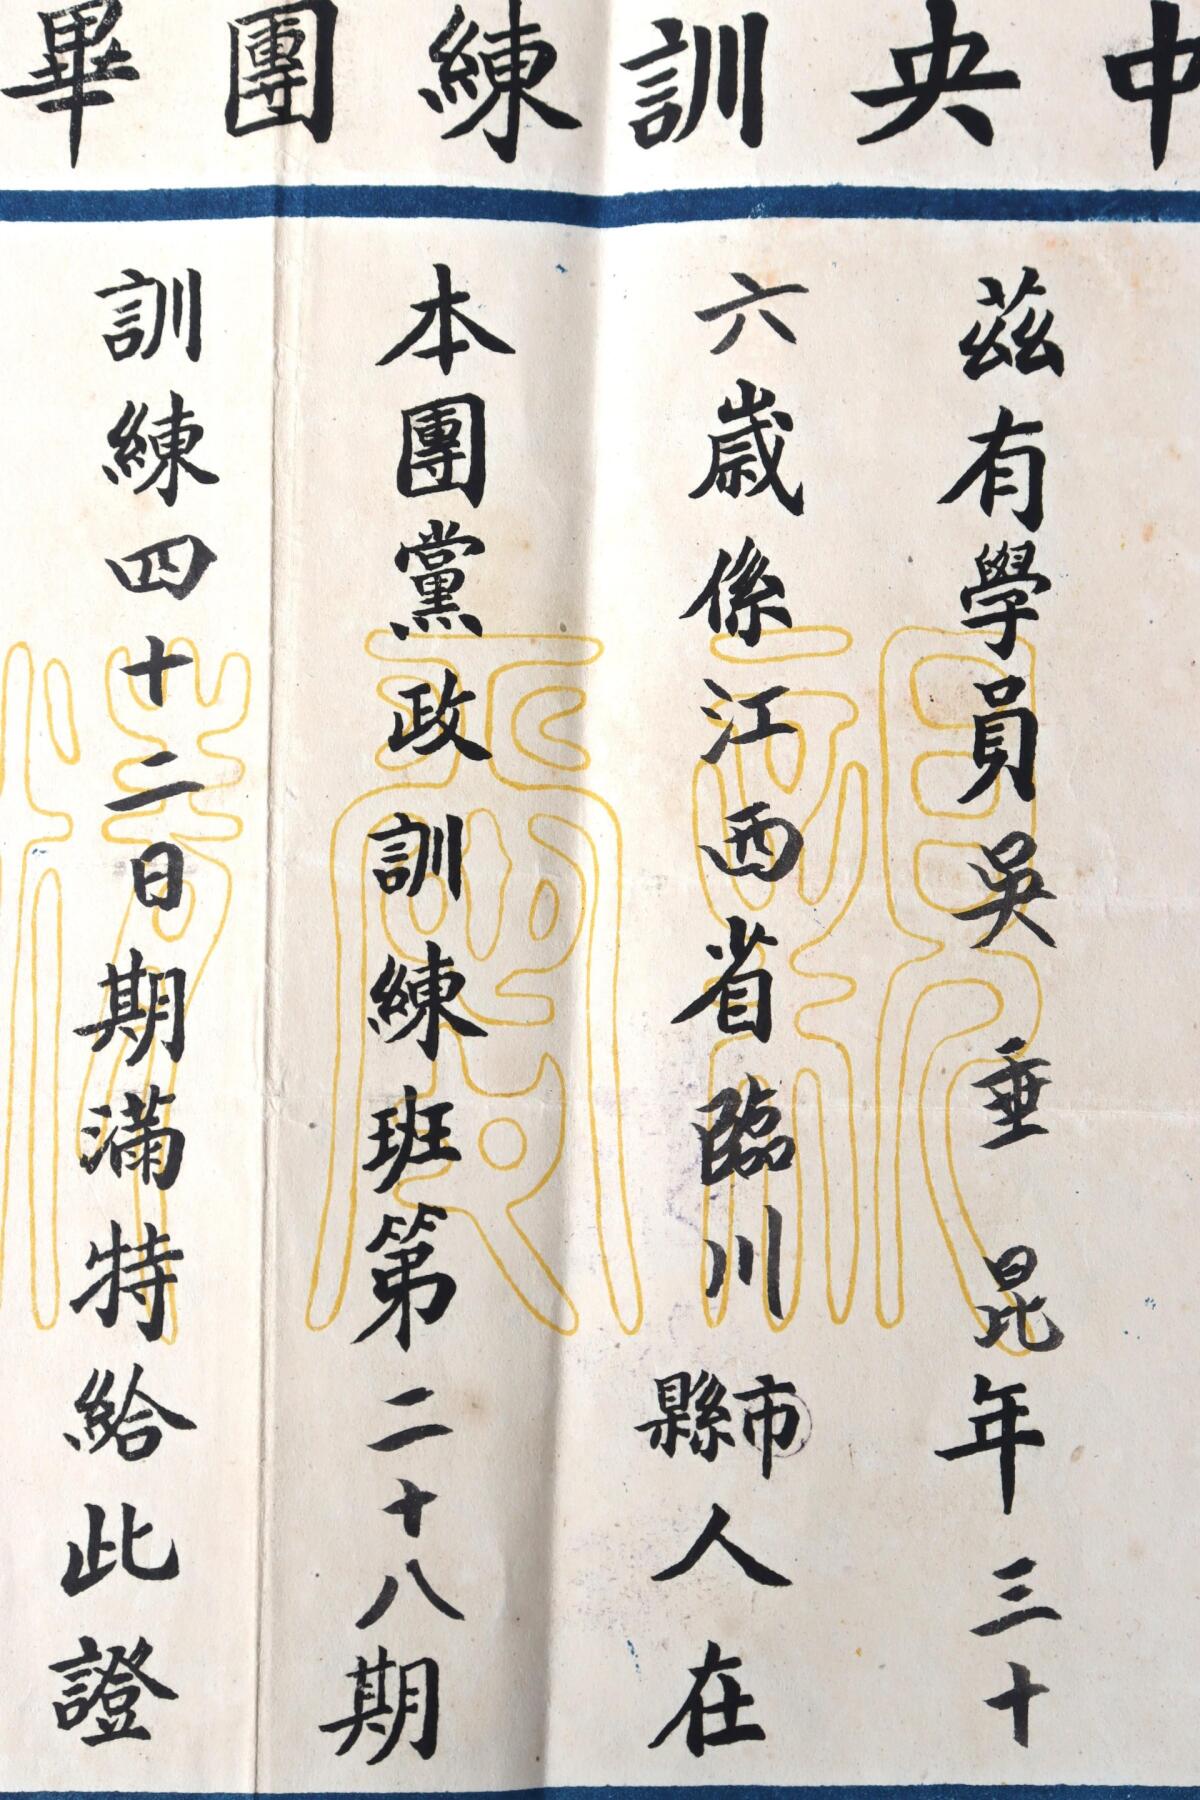 中央訓練團畢
茲有學員吳垂昆年三十
六歲係江西省臨川市縣人在
本團黨政訓練班第二十八期
訓練四十二日期滿特給此證